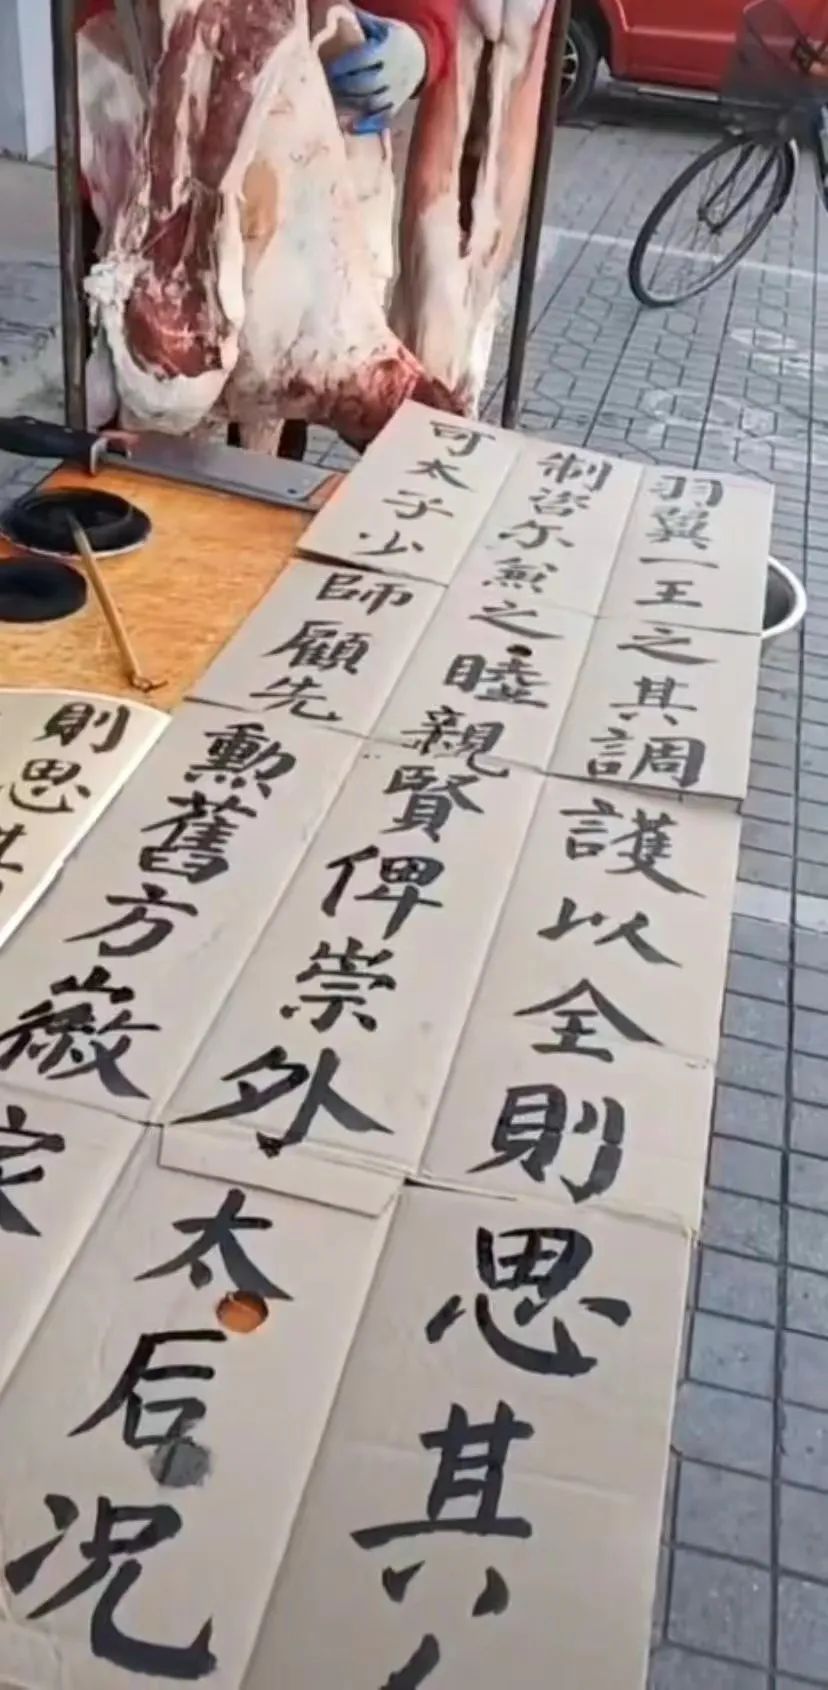 羽翼一王之其調護以全則思其
制咨尔兼之睦親賢俾崇外太后况
可太子少師顧先勲舊方徽家
則思其